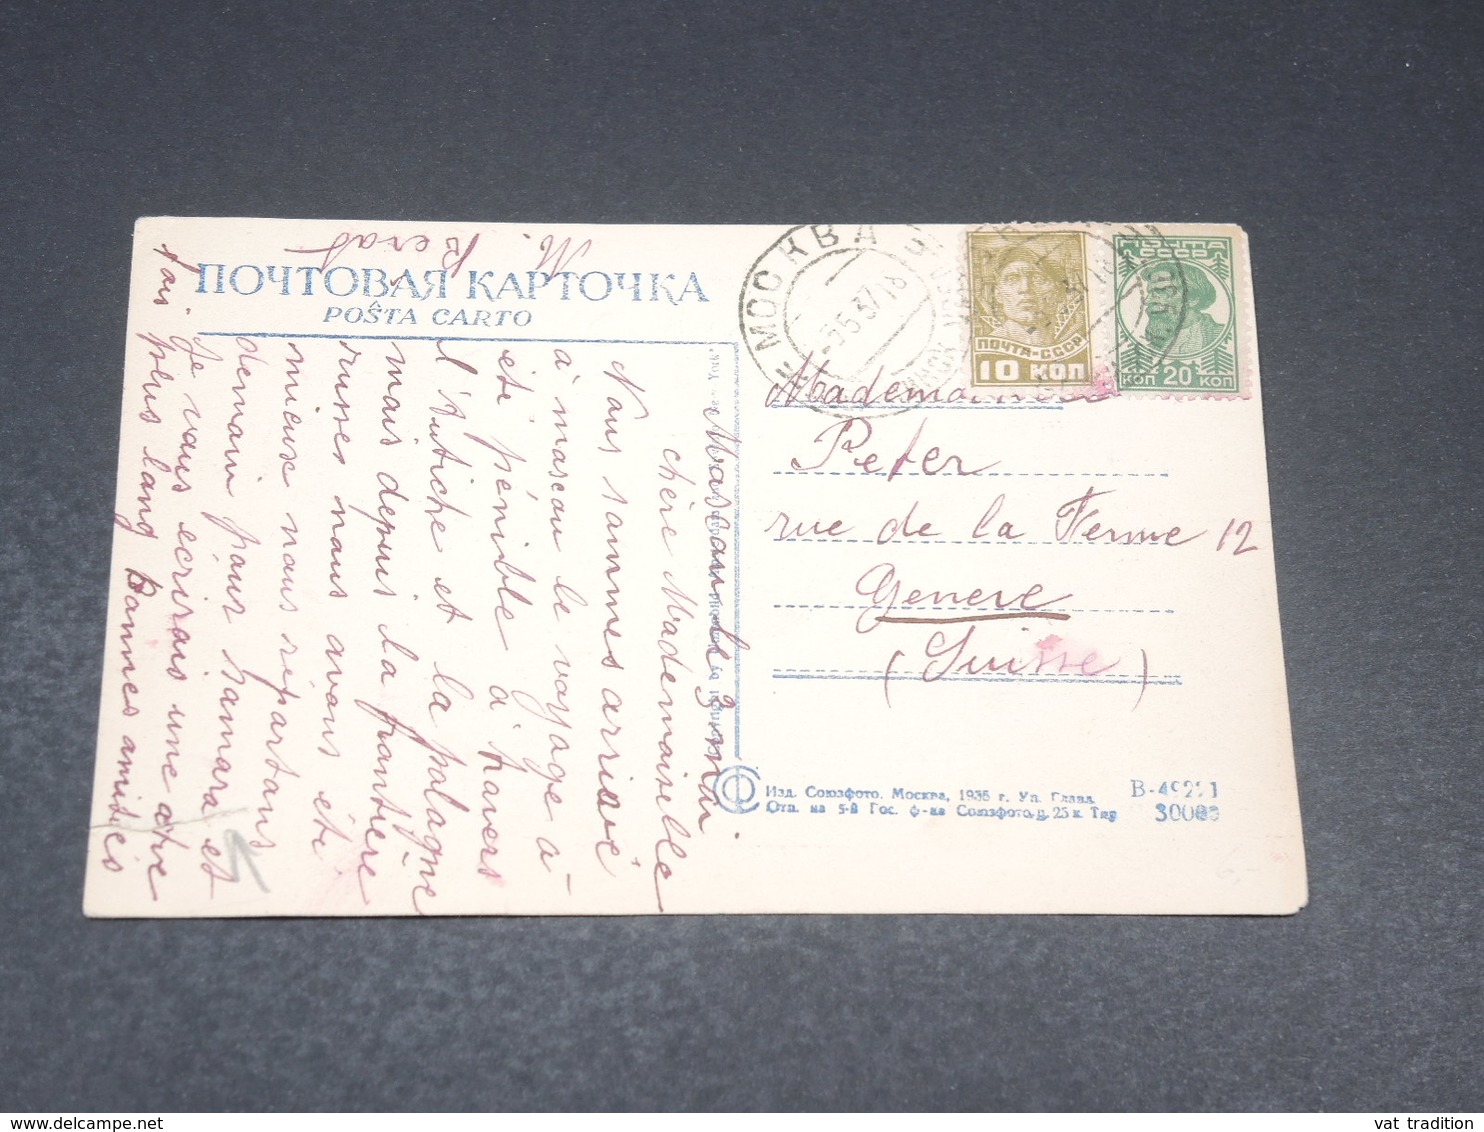 ПОЧТОВАЯ КАРТОЧКА
POŜTA CARTO
Moscou le 3 mai.
chère Mademoiselle
Nous sommes arrivé
à moscou le voyage à
été pénible à travers
l'Autriche et la pologne
mais depuis la frontière
russes nous avons été
mieux nous répartons
demain pour Samara et
je vous ecrirais une otre
fois plus long Bonnes amitiés
M. Berat
МОСКВА
-3.5.37.18
ПОЧТА-СССР
10 КОП
ПОЧТА
СССР
КОП 20 КОП
Mademoiselle
Peter
rue de la Ferme 12
Geneve
(Suisse)
Изд. Союзфото. Москва, 1936 г. Ул. Главл.
В-49221
Отп. на 5-й Гос. ф-ке Союзфото. ц. 25 к. Тир
30000
vat tradition